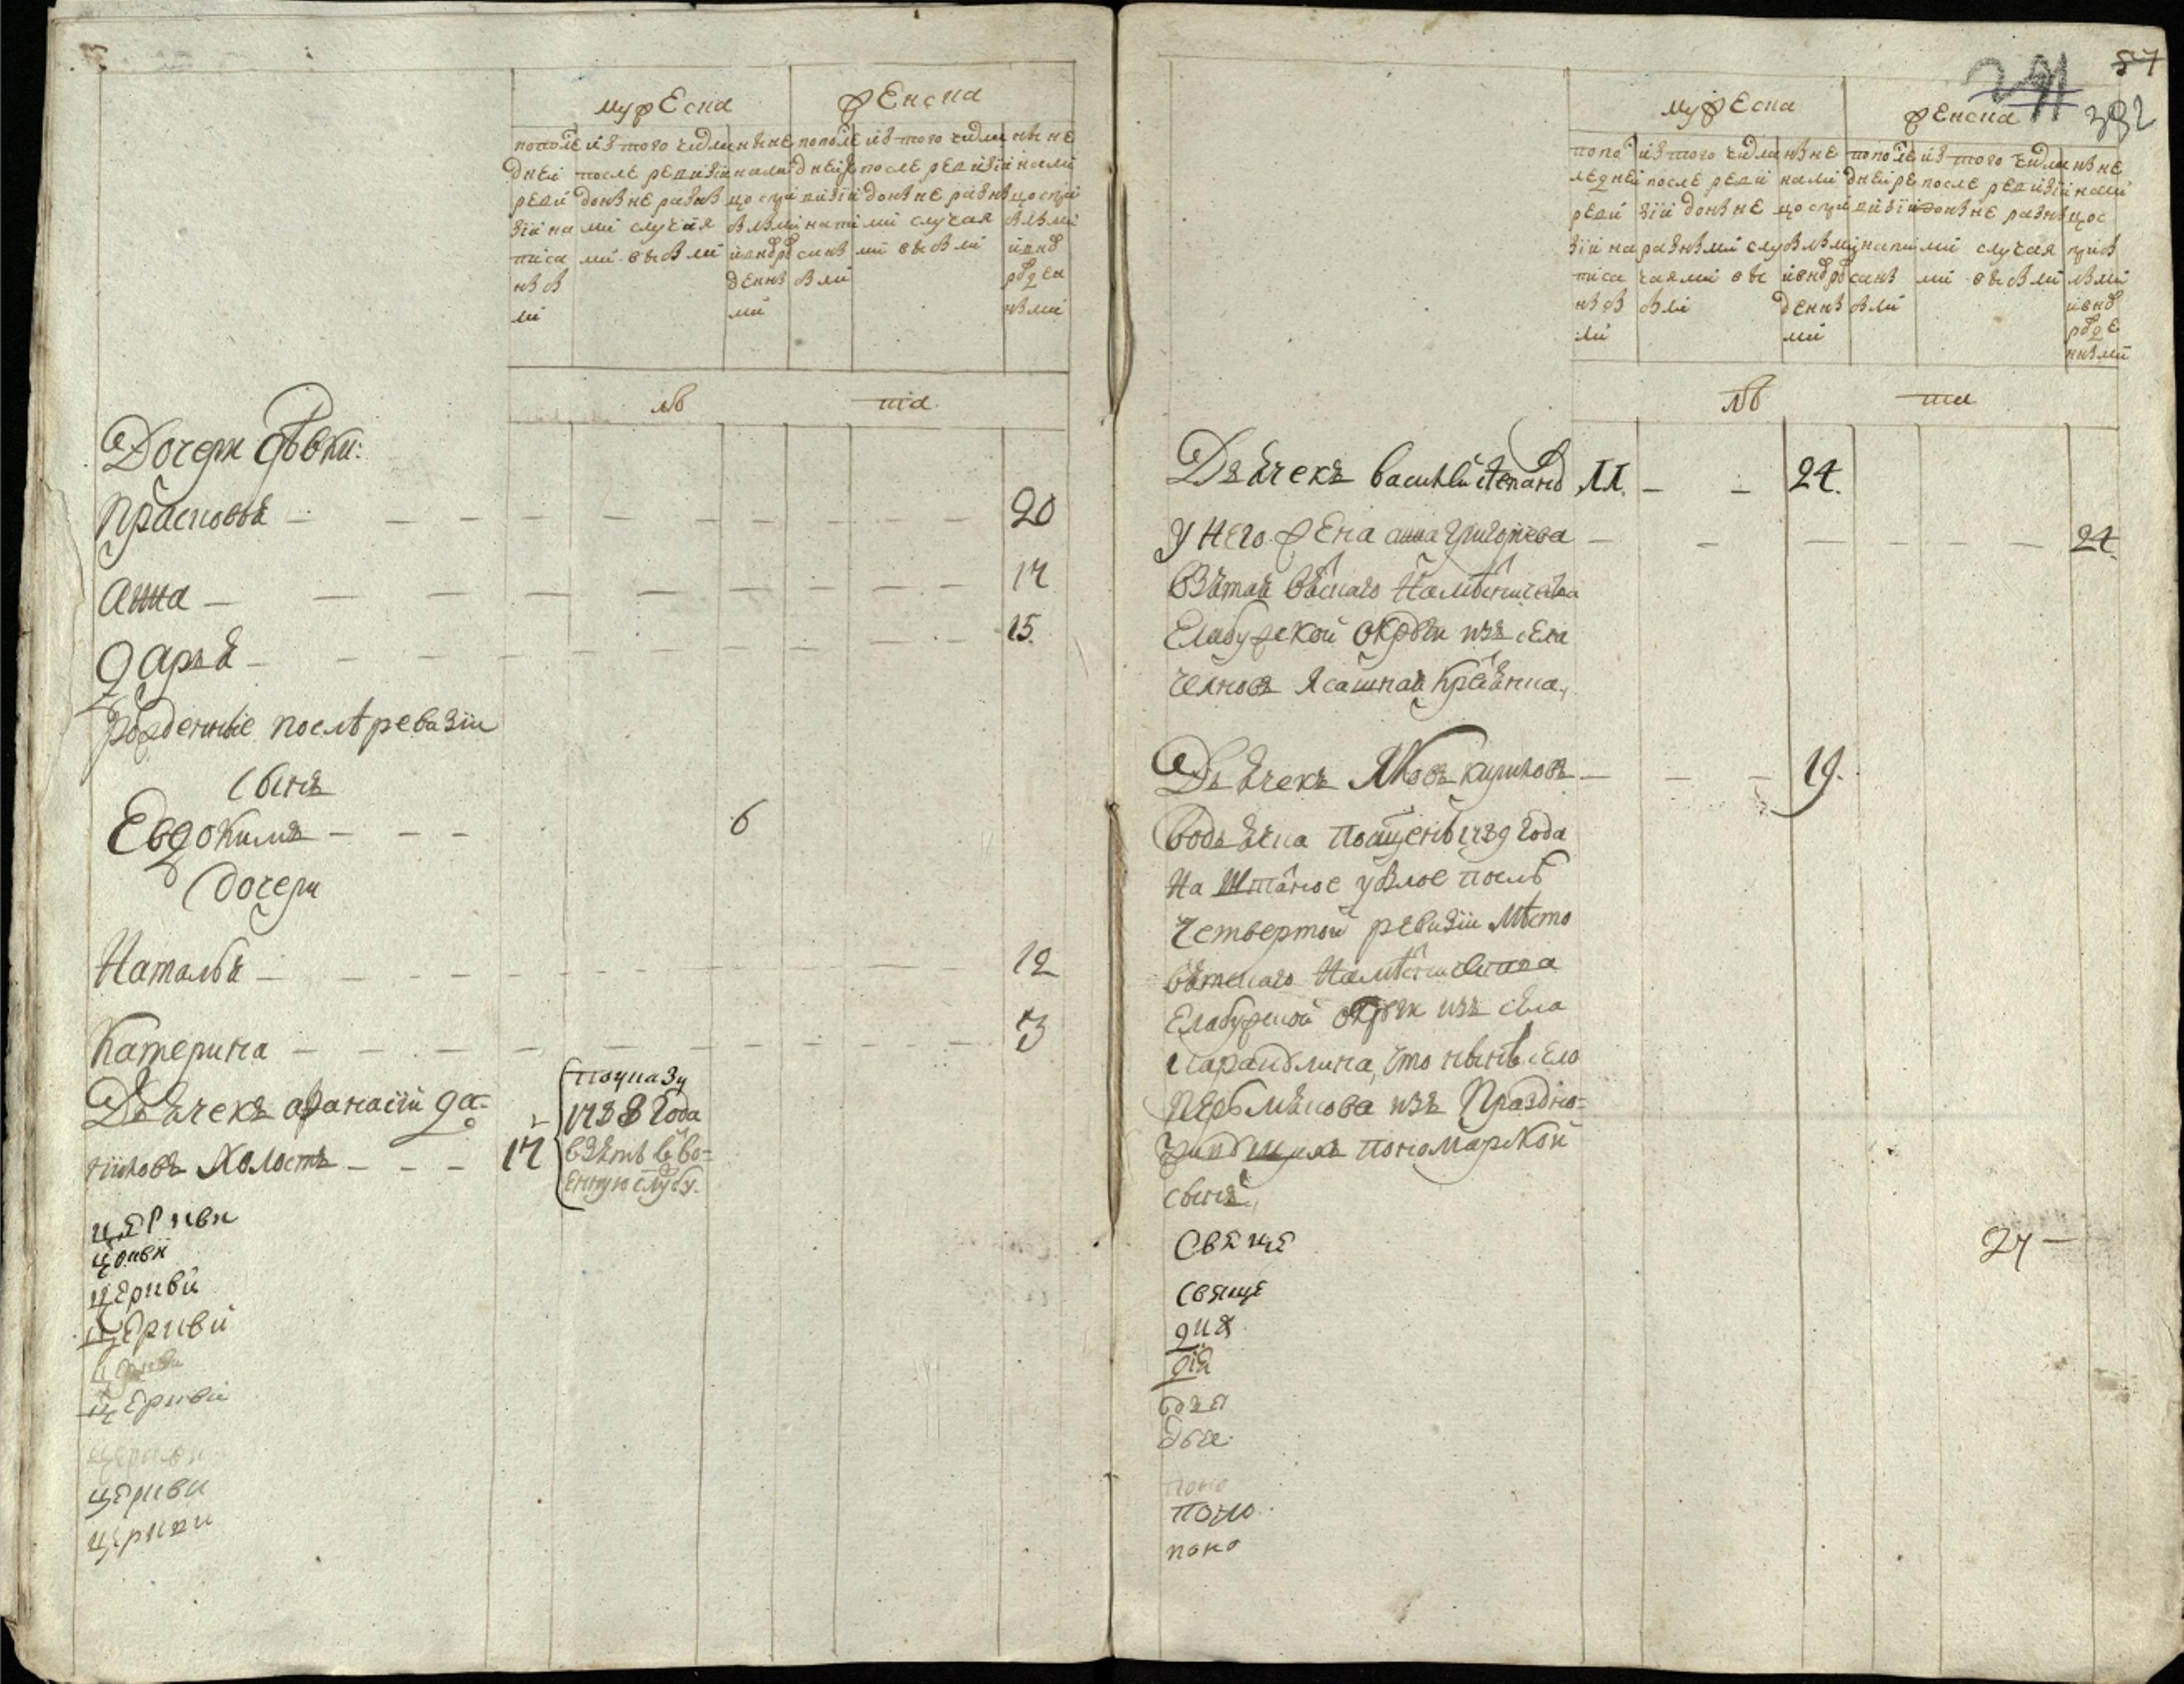 мужеска
женска
по последней ревизіи написанъ были
изъ того числа после ревизіи донынѣ разными случаями выбыли
нынѣ на лицо съ прибылыми и вновь рожденными
по последней ревизіи написаны были
изъ того числа после ревизіи донынѣ разными случаями выбыли
нынѣ на лицо съ прибылыми и вновь рожденными
лѣ
та
Дочери дѣвки:
Прасковья — 20
Анна — 17
Дарья — 15.
Рожденные послѣ ревизіи
сынъ
Евдокимъ — 6
дочери
Наталья — 12
Катерина — 3
Дьячекъ Афанасій Да-
ниловъ холостъ — 17
по указу
1788 года
взятъ въ во-
енную службу.
церкви
церкви
церкви
церкви
церкви
церкви
церкви
церкви
церкви
87
291
392
мужеска
женска
по последней ревизіи написанъ были
изъ того числа после ревизіи донынѣ разными случаями выбыли
нынѣ на лицо съ прибылыми и вновь рожденными
по последней ревизіи написаны были
изъ того числа после ревизіи донынѣ разными случаями выбыли
нынѣ на лицо съ прибылыми и вновь рожденными
лѣ
та
Дьячекъ Василій Степановъ 11. — — 24.
У него жена Анна Григорьева — 24.
взятая Вятскаго намѣстничества
Елабужской округи изъ села
Челновъ ясашная крестьянка,
Дьячекъ Яковъ Кириловъ — 19.
во дьячка посвященъ 1789 года
на штатное убылое послѣ
четвертой ревизіи мѣсто
Вятскаго намѣстничества
Елабужской округи изъ села
что нынѣ село
изъ праздно-
живущихъ пономарской
сынъ,
свяще
27 —
свяще
дия
дія
дья
дья
поно
поно
поно